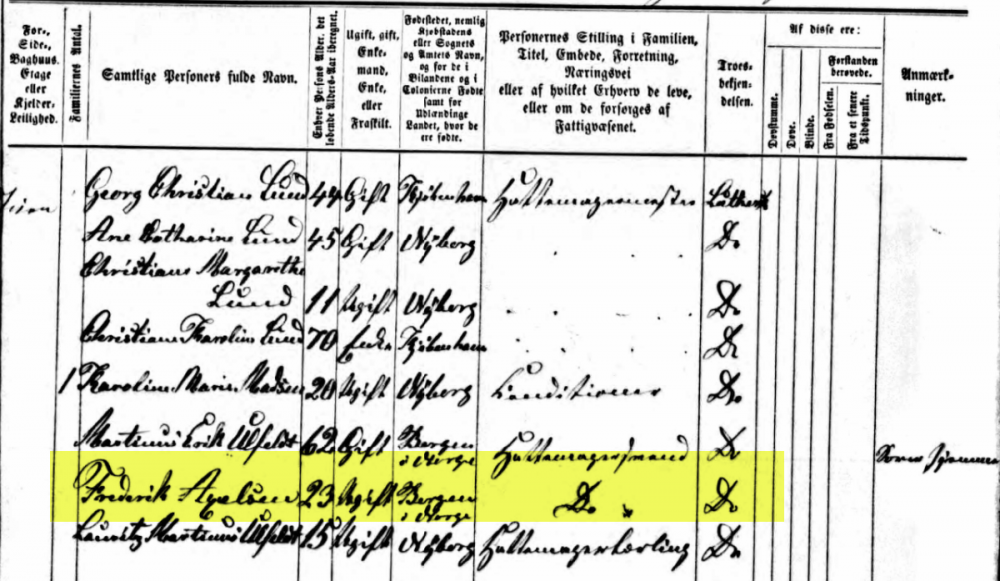 For-, Side-, Baghuus, Etage eller Kjelder-Leilighed.
Familiernes Antal.
Samtlige Personers fulde Navn.
Enhver Persons Alder, det løbende Alders-Aar iberegnet.
Ugift, gift, Enkemand, Enke, eller Fraskilt.
Fødestedet, nemlig Kjøbstadens eller Sognets og Amtets Navn, og for de i Bilandene og i Colonierne Fødte samt for Udlændinge Landet, hvor de ere fødte.
Personernes Stilling i Familien, Titel, Embede, Forretning, Næringsvei eller af hvilket Erhverv de leve, eller om de forsørges af Fattigvæsenet.
Troes-bekjen-delsen.
Af disse ere:
Døvstumme.
Døve.
Blinde.
Forstanden berøvede.
Fra Fødselen.
Fra et senere Tidspunkt.
Anmærk-ninger.
Georg Christian Lund 44 Gift Kjøbenhavn Hattemagermester Luthersk
Ane Cathrine Lund 45 Gift Nyborg Do
Christiane Margrethe
Lund 11 Ugift Nyborg Do
Christiane Karoline Lund 70 Enke Kjøbenhavn Do
1 Karoline Marie Madsen 20 Ugift Nyborg Do
Martinus Erik Ulfeldt 62 Gift Bergen i Norge Hattemagersvend Do
Frederik Axelsen 23 Ugift Bergen i Norge Do Do
Lauritz Martinus Ulfeldt 15 Ugift Nyborg Hattemagerlærling Do